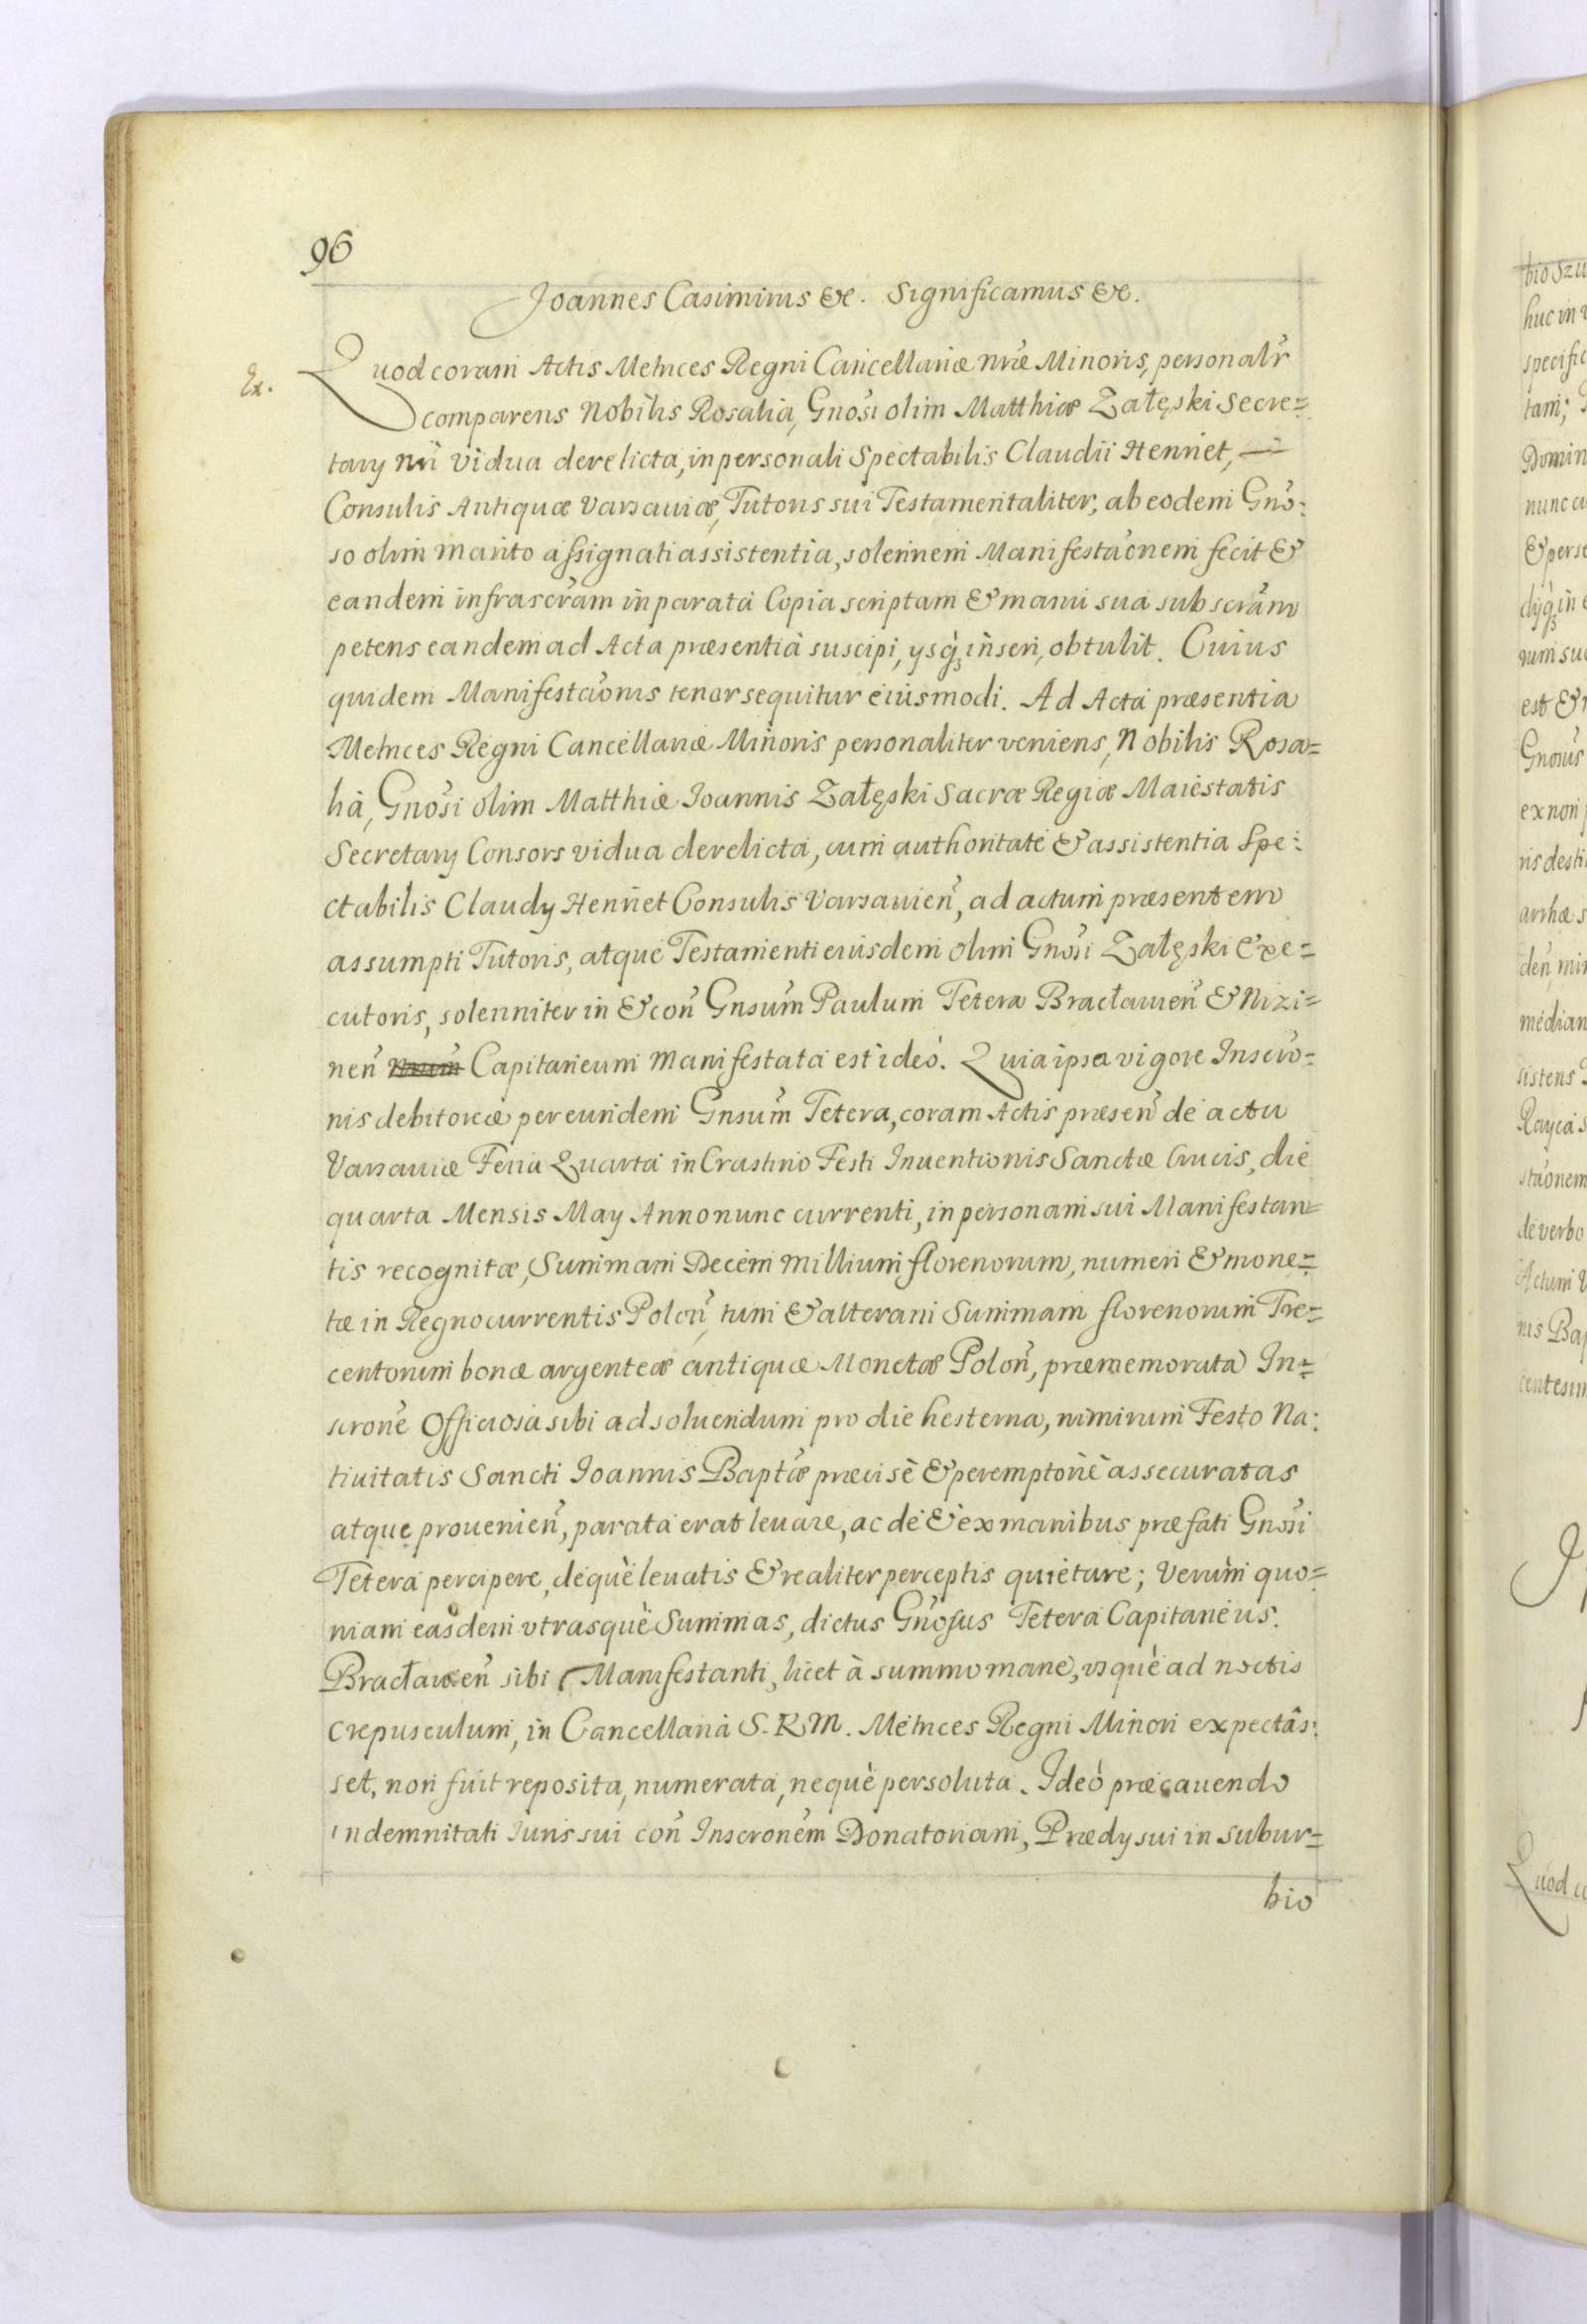 96
Joannes Casimirus &c. Significamus &c.
Ex.
Quod coram Actis Metrices Regni Cancellariæ nr̃æ Minoris, personalr̃
comparens Nobilis Rosalia, Gnõsi olim Matthiæ Załęski Secre=
tary nr̃i vidua derelicta, in personali Spectabilis Claudii Henriet,
Consulis Antiquæ Varsaviæ, Tutoris sui Testamentaliter, ab eodem Gnõ:
so olim marito assignati assistentia, solennem Manifestãonem fecit &
eandem infrascr̃am in parata Copia scriptam & manu sua subscr̃am
petens eandem ad Acta præsentia suscipi, ysq̃3 inseri, obtulit. Cuius
quidem Manifestãonis tenor sequitur eiusmodi. Ad Acta præsentia
Metrices Regni Cancellariæ Minoris personaliter veniens, Nobilis Rosa=
lia, Gnõsi olim Matthiæ Ioannis Załęski Sacræ Regiæ Maiestatis
Secretary Consors vidua derelicta, cum authoritate & assistentia Spe:
ctabilis Claudy Henriet Consulis Varsavien̄, ad actum præsentem
assumpti Tutoris, atque Testamenti eiusdem olim Gnõsi Załęski Exe=
cutoris, solenniter in & con̄ Gnsũm Paulum Tetera Bracłavien̄ & Nizi=
nen̄ Capitaneum manifestata est ideó. Quia ipsa vigore Inscrõ=
nis debitoriæ per eundem Gnsũm Tetera, coram Actis præsen̄ de actu
Varsaviæ Feria Quarta in Crastino Festi Inventionis Sanctæ Crucis, die
quarta Mensis May Anno nunc currenti, in personam sui Manifestan=
tis recognitæ, Summam Decem Millium florenorum, numeri & mone=
tæ in Regno currentis Polon̄, tum & alteram Summam florenorum Tre=
centorum bonæ argenteæ antiquæ Monetæ Polon̄, præmemorata In=
scrõne Officiosa sibi ad solvendum pro die hesterna, nimirum Festo Na:
tivitatis Sancti Joannis Baptæ̃ præcisè & peremptoriè assecuratas
atque provenien̄, parata erat levare, ac de & ex manibus præfati Gnõsi
Tetera percipere, dequè levatis & realiter perceptis quietare; Verùm quo=
niam easdem utrasquè Summas, dictus Gnõsus Tetera Capitaneus
Bracłavien̄ sibi Manifestanti, licet à summo mane, usquè ad noctis
crepusculum, in Cancellaria S. R. M. Metrices Regni Minori expectâs:
set, non fuit reposita, numerata, nequè persoluta. Ideó præcavendo
indemnitati Iuris sui con̄ Inscronẽm Donatoriam, Prædy sui in subur=
bio